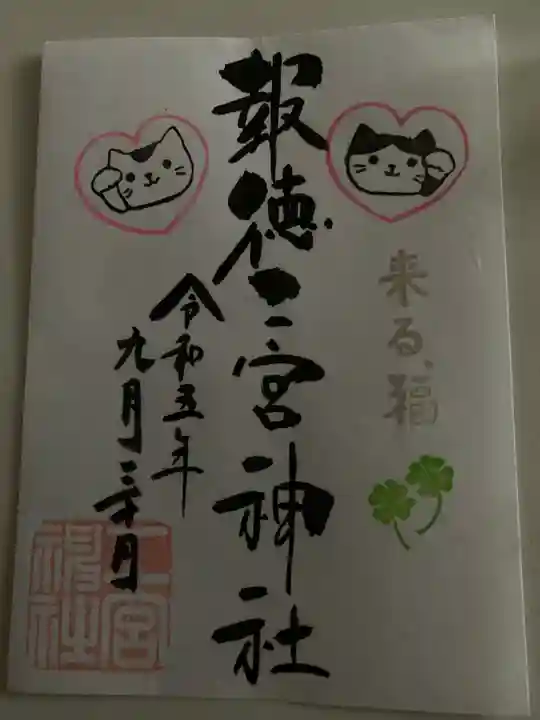 来る福
報徳二宮神社
令和五年
九月三十日
二宮神社